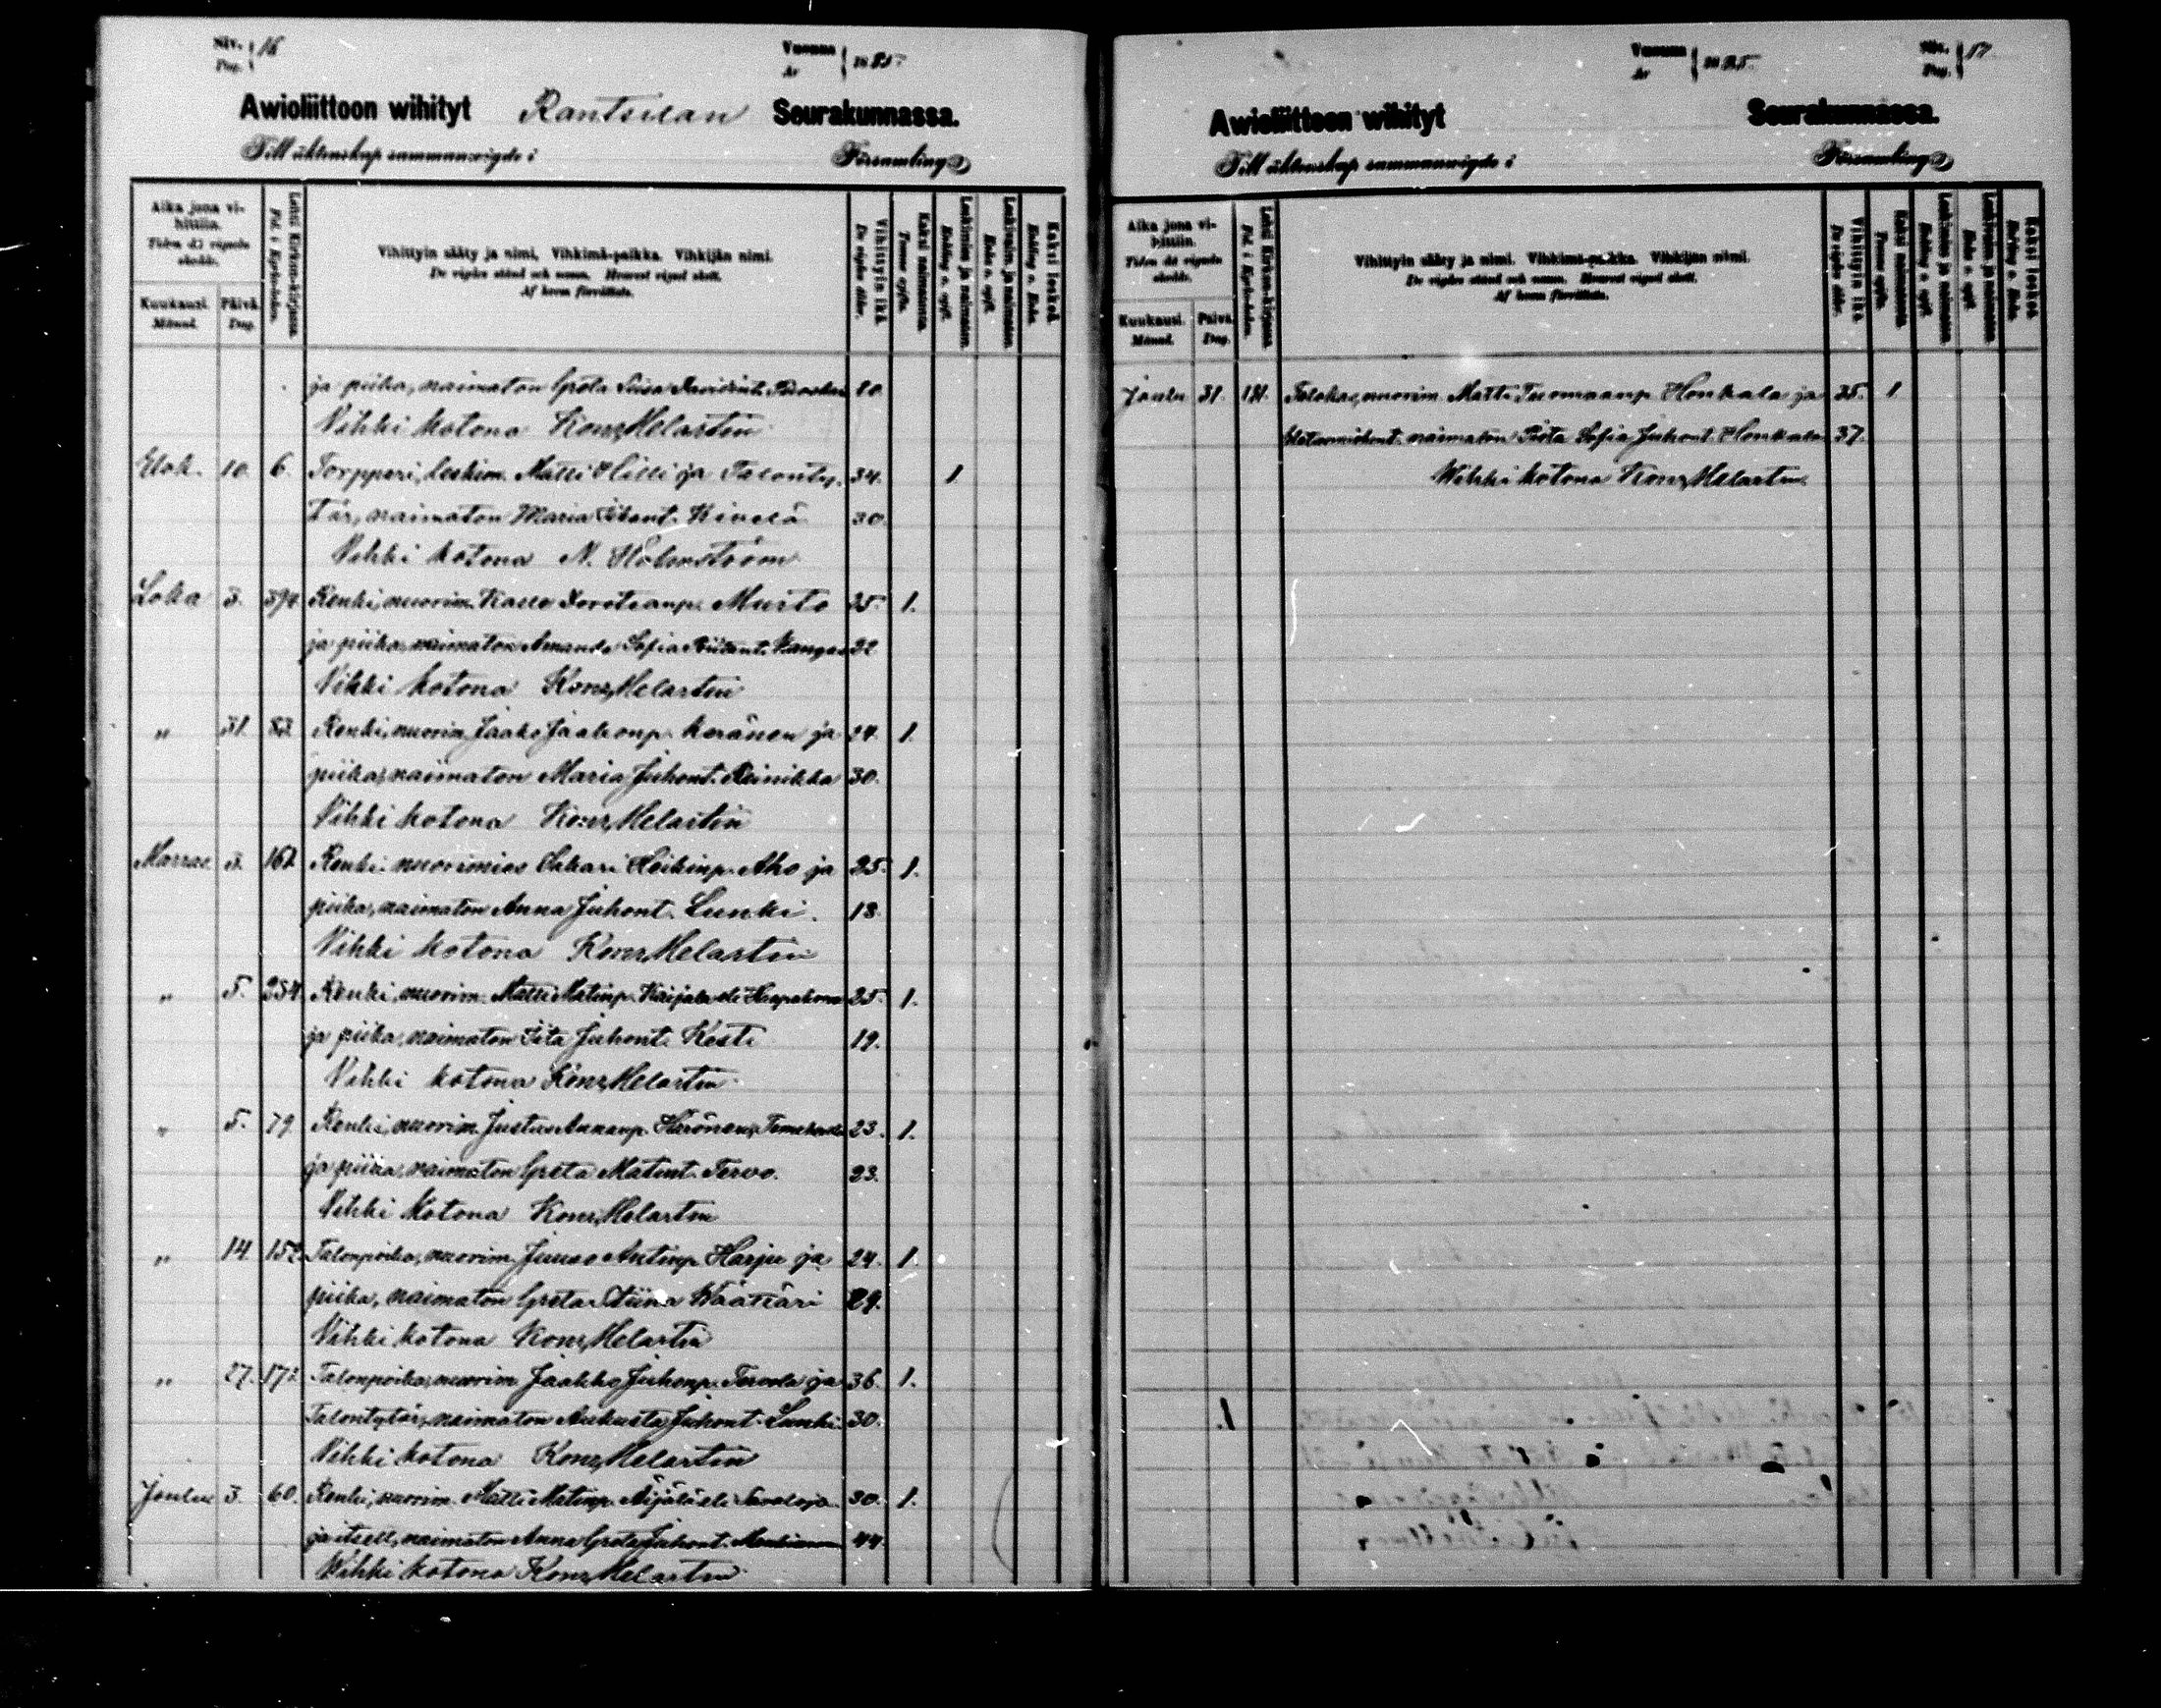 Siv. Pag. 16
Vuonna År 1885.
Awioliittoon wihityt Rantsilan Seurakunnassa.
Till äktenskap sammanvigde i Församling
Aika jona vihittiin. Tiden då vigseln skedde.
Kuukausi. Månad.
Päivä. Dag.
Lehti Kirkon-kirjassa. Fol. i Kyrkoboken.
Vihittyin sääty ja nimi. Vihkimä-paikka. Vihkijän nimi.
De vigdas stånd och namn. Hvarest vigsel skett.
Af hvem förrättats.
Vihittyin ikä. De vigdas ålder.
Kaksi naimatonta. Tvenne ogifta.
Leskimies ja naimaton. Enkling o. ogift.
Leskivaim. ja naimaton. Enka o. ogift.
Kaksi leskeä. Enkling o. Enka.
ja piika, naimaton Greta Liisa
Vihki kotona Konr. Melartin
Elok. 10. 6. Torppari, leskim. Matti Hilli ja Talonty- 34. 1
tär, naimaton Maria Kivelä 30.
Vihki kotona N. Holmström
Loka 3. Renki, nuorim. Kalle Musto 25. 1.
ja piika, naimaton Amanda Sofia Kangas 22
Vihki kotona Konr. Melartin
" 31. 83. Renki, nuorim. Jaako Jaakonp. Keränen ja 24. 1.
piika, naimaton Maria Juhont. Reinikka 30.
Vihki kotona Konr. Melartin
Marras. 3. 167. Renki nuorimies Oskari Heikinp. Aho ja 25. 1.
piika, naimaton Anna Juhont. Lunki. 18.
Vihki kotona Konr. Melartin
" 5. 234. Renki, nuorim. Matti Matinp. Kaijala eli 25. 1.
ja piika, naimaton Iita Juhont. Kosti 19.
Vihki kotona Konr. Melartin
" 5. 79. Renki, nuorim. Justus Annanp. 23. 1.
ja piika, naimaton Greta Matint. Tervo. 23.
Vihki kotona Konr. Melartin
" 14. 152 Talonpoika, nuorim. Juuso Antinp. Harju ja 24. 1.
piika, naimaton Greta Stiina Määttäri 29.
Vihki kotona Konr. Melartin
" 27. 172 Talonpoika, nuorim. Jaakko Juhonp. Tervola ja 36. 1.
Talontytär, naimaton Aukusta Juhont. Lunki 30.
Vihki kotona Konr. Melartin
Joulu 3. 60. Renki, nuorim. Matti Matinp. Äijälä eli Savaloja 30. 1.
ja itsell. naimaton Anna Greta Juhont. 44.
Vihki kotona Konr. Melartin
Vuonna År 1885.
Siv. Pag. 17
Awioliittoon wihityt Seurakunnassa.
Till äktenskap sammanvigde i Församling
Aika jona vihittiin. Tiden då vigseln skedde.
Kuukausi. Månad.
Päivä. Dag.
Lehti Kirkon-kirjassa. Fol. i Kyrkoboken.
Vihittyin sääty ja nimi. Vihkimä-paikka. Vihkijän nimi.
De vigdas stånd och namn. Hvarest vigsel skett.
Af hvem förrättats.
Vihittyin ikä. De vigdas ålder.
Kaksi naimatonta. Tvenne ogifta.
Leskimies ja naimaton. Enkling o. ogift.
Leskivaim. ja naimaton. Enka o. ogift.
Kaksi leskeä. Enkling o. Enka.
Joulu 31. 181. nuorim. Matti Tuomaanp. Honkala ja 35. 1
naimaton Sofia Juhont. Honkala 37.
Wihki kotona Konr. Melartin